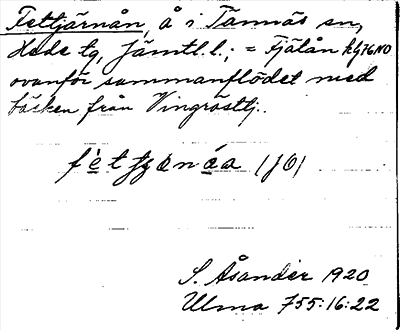 Fettjärnån å i Tännäs sn,
Hede tg, Jämtl. l.; = Fjälån kg 76 NO
ovanför sammanflödet med
bäcken från Vingröstj.
S. Åsander 1920
Ulma 755:16:22